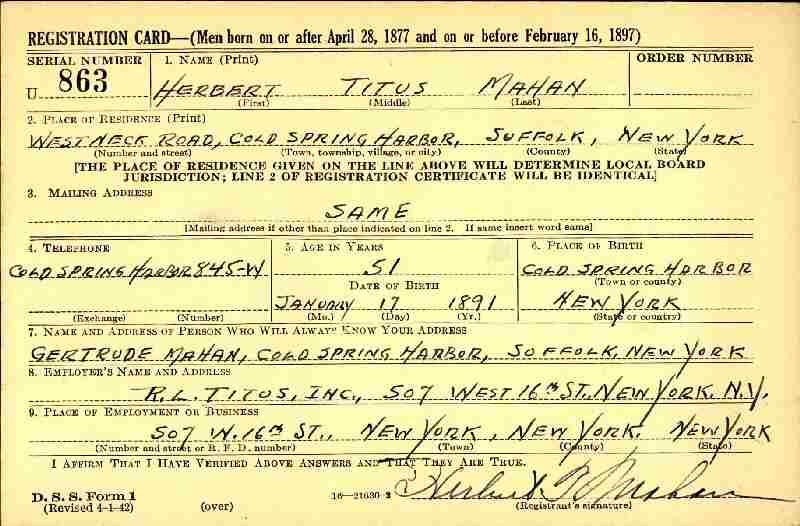 REGISTRATION CARD—(Men born on or after April 28, 1877 and on or before February 16, 1897)
SERIAL NUMBER 1. NAME (Print) ORDER NUMBER
U 863 HERBERT TITUS MAHAN
(First) (Middle) (Last)
2. PLACE OF RESIDENCE (Print)
WEST NECK ROAD, COLD SPRING HARBOR, SUFFOLK, NEW YORK
(Number and street) (Town, township, village, or city) (County) (State)
[THE PLACE OF RESIDENCE GIVEN ON THE LINE ABOVE WILL DETERMINE LOCAL BOARD
JURISDICTION; LINE 2 OF REGISTRATION CERTIFICATE WILL BE IDENTICAL]
3. MAILING ADDRESS
SAME
[Mailing address if other than place indicated on line 2. If same insert word same]
4. TELEPHONE 5. AGE IN YEARS 6. PLACE OF BIRTH
COLD SPRING HARBOR 845-W 51 COLD SPRING HARBOR
DATE OF BIRTH (Town or county)
JANUARY 17 1891 NEW YORK
(Exchange) (Number) (Mo.) (Day) (Yr.) (State or country)
7. NAME AND ADDRESS OF PERSON WHO WILL ALWAYS KNOW YOUR ADDRESS
GERTRUDE MAHAN, COLD SPRING HARBOR, SUFFOLK, NEW YORK
8. EMPLOYER'S NAME AND ADDRESS
R.L. TITUS, INC., 507 WEST 16TH ST. NEW YORK, N.Y.
9. PLACE OF EMPLOYMENT OR BUSINESS
507 W. 16TH ST., NEW YORK, NEW YORK. NEW YORK
(Number and street or R. F. D. number) (Town) (County) (State)
I AFFIRM THAT I HAVE VERIFIED ABOVE ANSWERS AND THAT THEY ARE TRUE.
D. S. S. Form 1 16—21630-2 Herbert T. Mahan
(Revised 4-1-42) (over) (Registrant's signature)